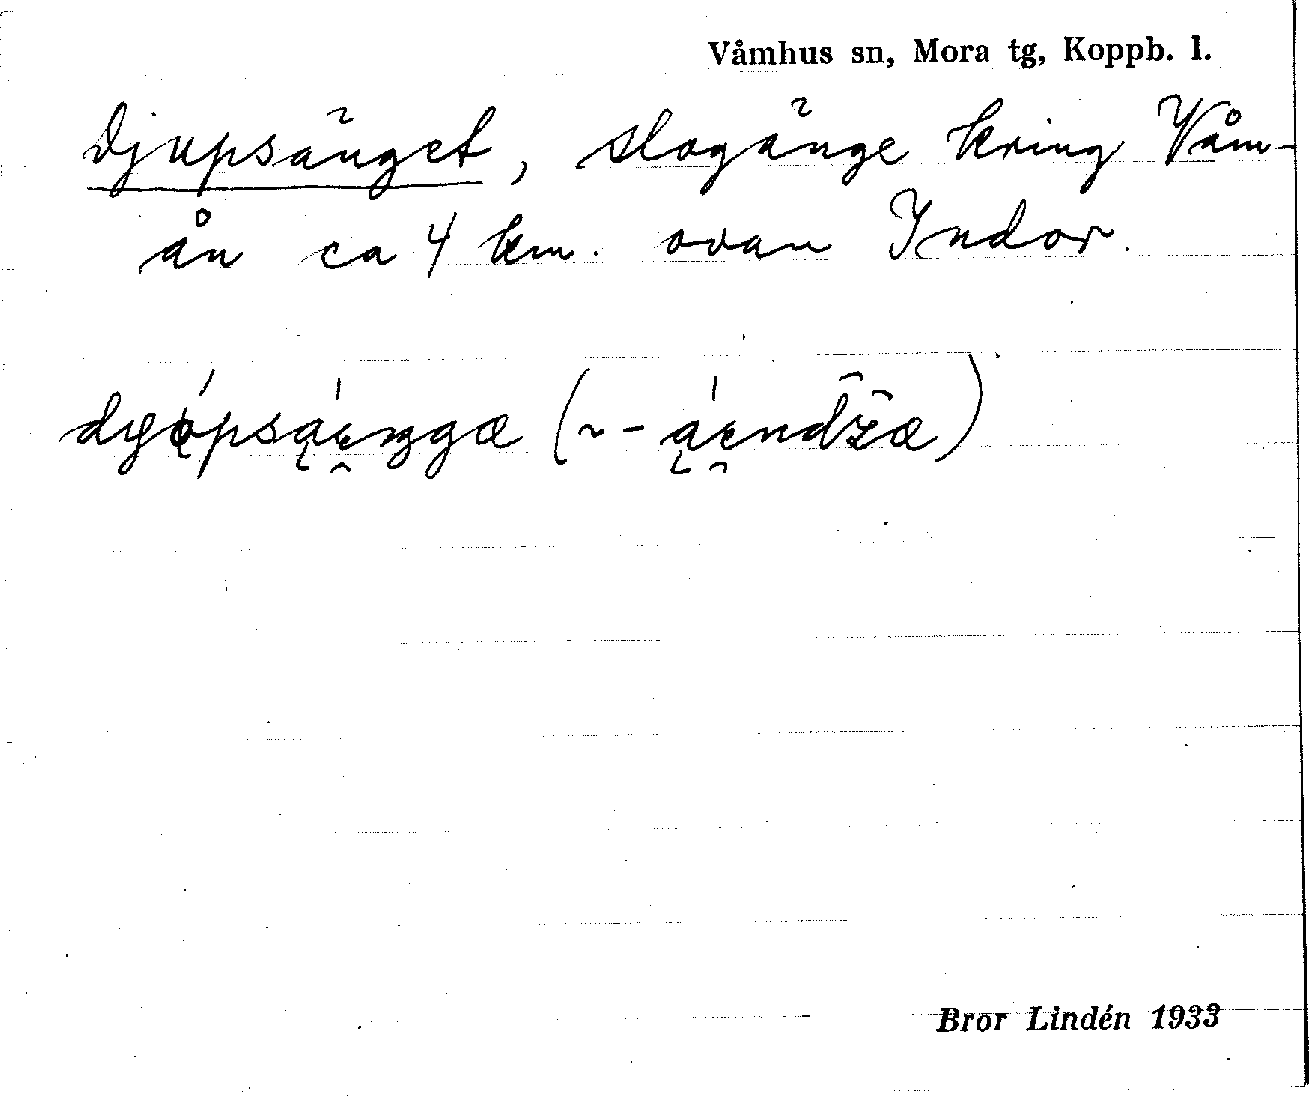 Våmhus sn, Mora tg, Koppb. l.
Djupsänget, slogänge kring Våm-
ån ca 4 km. ovan Indor.
Bror Lindén 1933